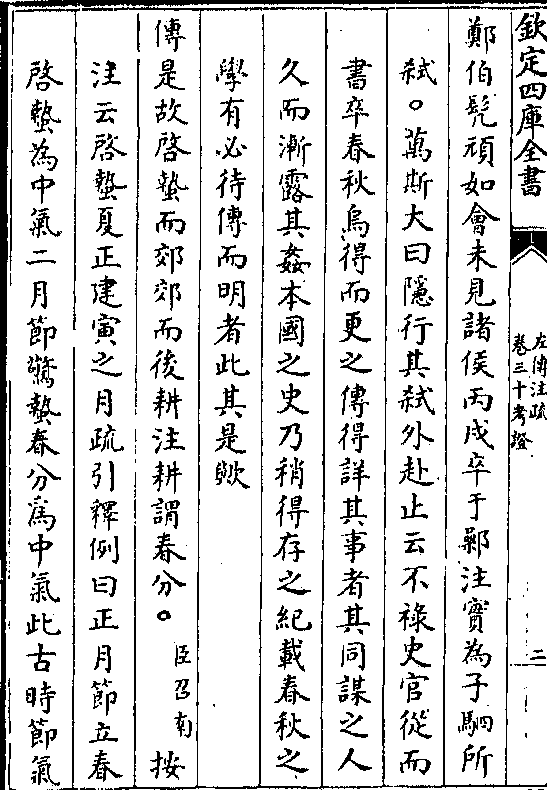 欽定四庫全書
左傳注疏
卷三十考證
二
鄭伯髠頑如會未見諸侯丙戌卒于鄵注實為子駟所
弑。萬斯大曰隱行其弑外赴止云不祿史官從而
書卒春秋烏得而更之傳得詳其事者其同謀之人
久而漸露其姦本國之史乃稍得存之紀載春秋之
學有必待傳而明者此其是歟
傳是故啓蟄而郊郊而後耕注耕謂春分。臣召南按
注云啓蟄夏正建寅之月疏引釋例曰正月節立春
啓蟄為中氣二月節驚蟄春分為中氣此古時節氣